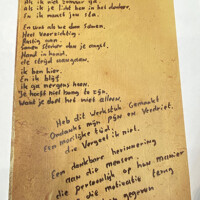 Als ik niet zomaar ga.
als ik je licht ben in het donker,
En ik naast jou sta.
En dan als we daar samen.
Heel voorzichtig.
Rustig aan
samen sterker dan je angst.
Hand in hand.
de strijd aangaan.
ik ben hier.
En ik blijf
ik ga nergens heen.
Je hoeft niet bang te zijn.
Want je doet het niet alleen.
Heb dit werkstuk Gemaakt
Ondanks mijn pijn en Verdriet.
Een moeilijke tijd.
die Vergeet ik niet.
Een dankbare herinnering
aan die mensen.
die persoonlijk op hun manier
die motivatie terug
gegeven